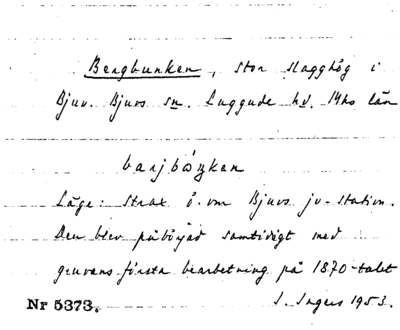 Bergbunken, stor slagghög i
Bjuv. Bjuvs sn. Luggude hd. Mhs län
barjbåŋken
Läge: strax ö. om Bjuvs jv-station.
Den blev påbörjad samtidigt med
gruvans första bearbetning på 1870-talet
Nr 5373. I. Ingers 1953.